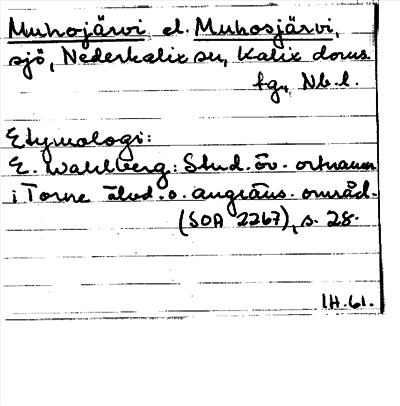 Muhojärvi el. Muhosjärvi,
sjö, Nederkalix sn, Kalix doms
fg, Nb.l.
Etymologi:
E. Wahlberg: Stud. öv. ortnamn
i Torne älvd. o. angräns. områd.
(SOA 2267), s. 28.
IH.61.